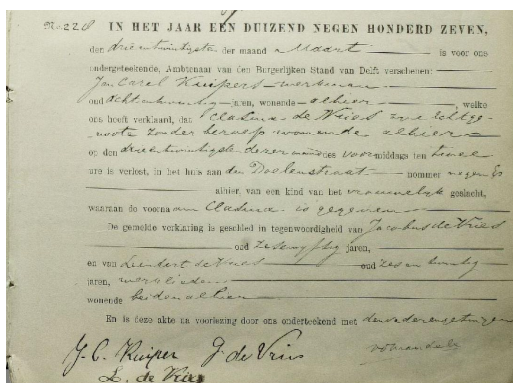 No. 228 IN HET JAAR EEN DUIZEND NEGEN HONDERD ZEVEN,
den drieentwintigste der maand Maart is voor ons
ondergeteekende, Ambtenaar van den Burgerlijken Stand van Delft verschenen:
Jan Carel Kuipers werkman
oud achtentwintig jaren, wonende alhier, welke
ons heeft verklaard, dat Clasina de Vries zijne echtge-
noote zonder beroep wonende alhier
op den drieentwintigste dezer maand des voormiddags ten twee
ure is verlost, in het huis aan den Doelenstraat nommer negen
alhier, van een kind van het vrouwelijk geslacht,
waaraan de voornaam Clasina is gegeven
De gemelde verklaring is geschied in tegenwoordigheid van Jacobus de Vries
oud zesenvijftig jaren,
en van Leendert de Vries oud zesentwintig
jaren, werklieden
wonende beiden alhier
En is deze akte na voorlezing door ons onderteekend met den vader en getuigen
voormeld
J. C. Kuiper J. de Vries
L. de Vries